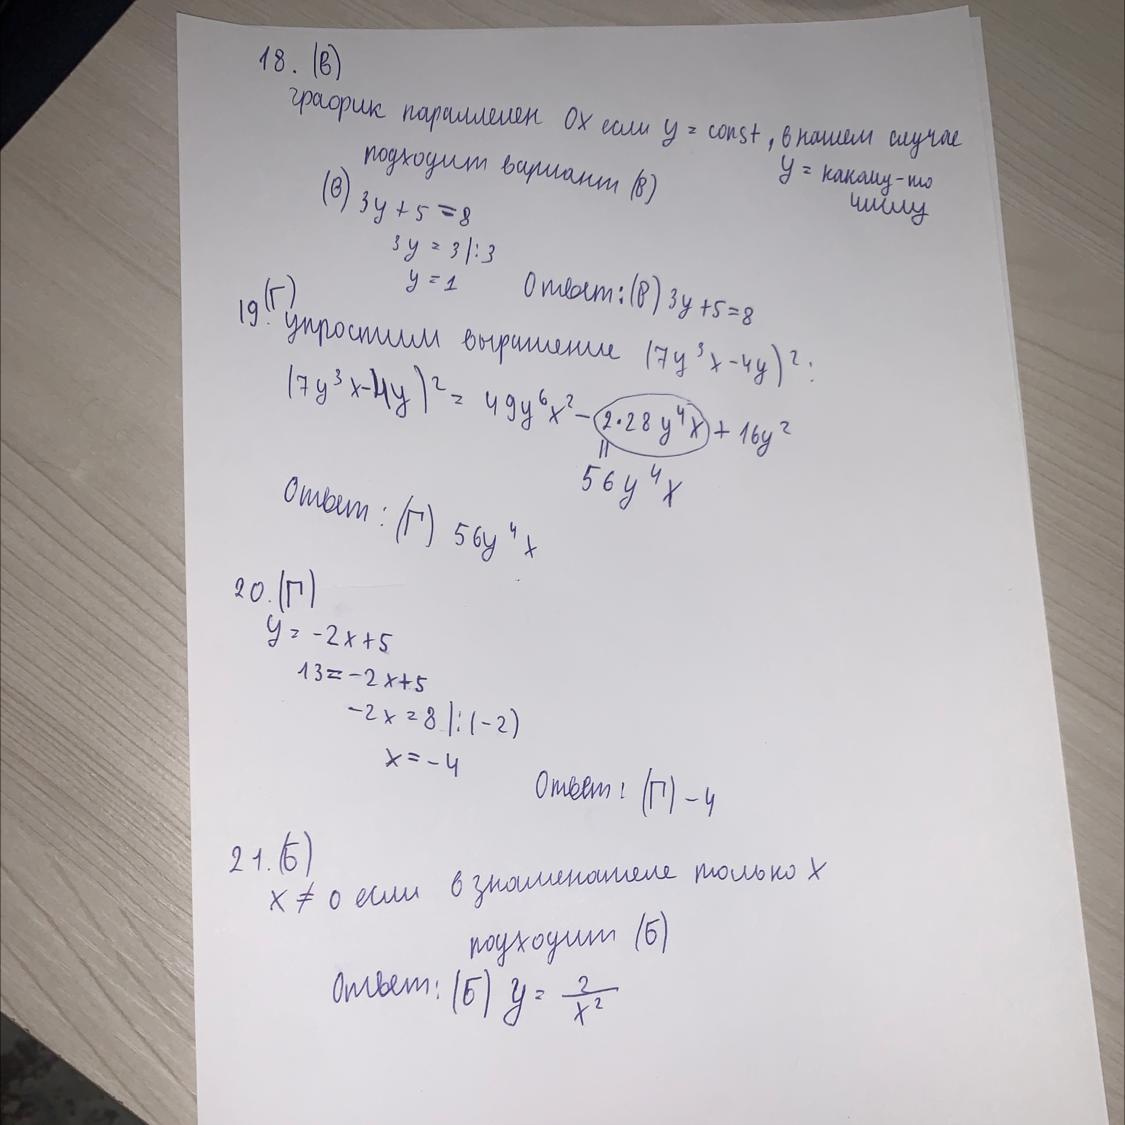 18. (В)
график параллелен Ox если y = const, в нашем случае
y = какому-то
числу
подходит вариант (В)
(В) 3y + 5 = 8
3y = 3 |:3
y = 1
Ответ: (В) 3y + 5 = 8
19. (Г)
Упростим выражение (7y³x - 4y)²:
(7y³x - 4y)² = 49y⁶x² - 2·28y⁴x + 16y²
56y⁴x
Ответ: (Г) 56y⁴x
20. (Г)
y = -2x + 5
13 = -2x + 5
-2x = 8 |:(-2)
x = -4
Ответ: (Г) -4
21. (Б)
x ≠ 0 если в знаменателе только x
подходит (Б)
Ответ: (Б) y = 2/x²